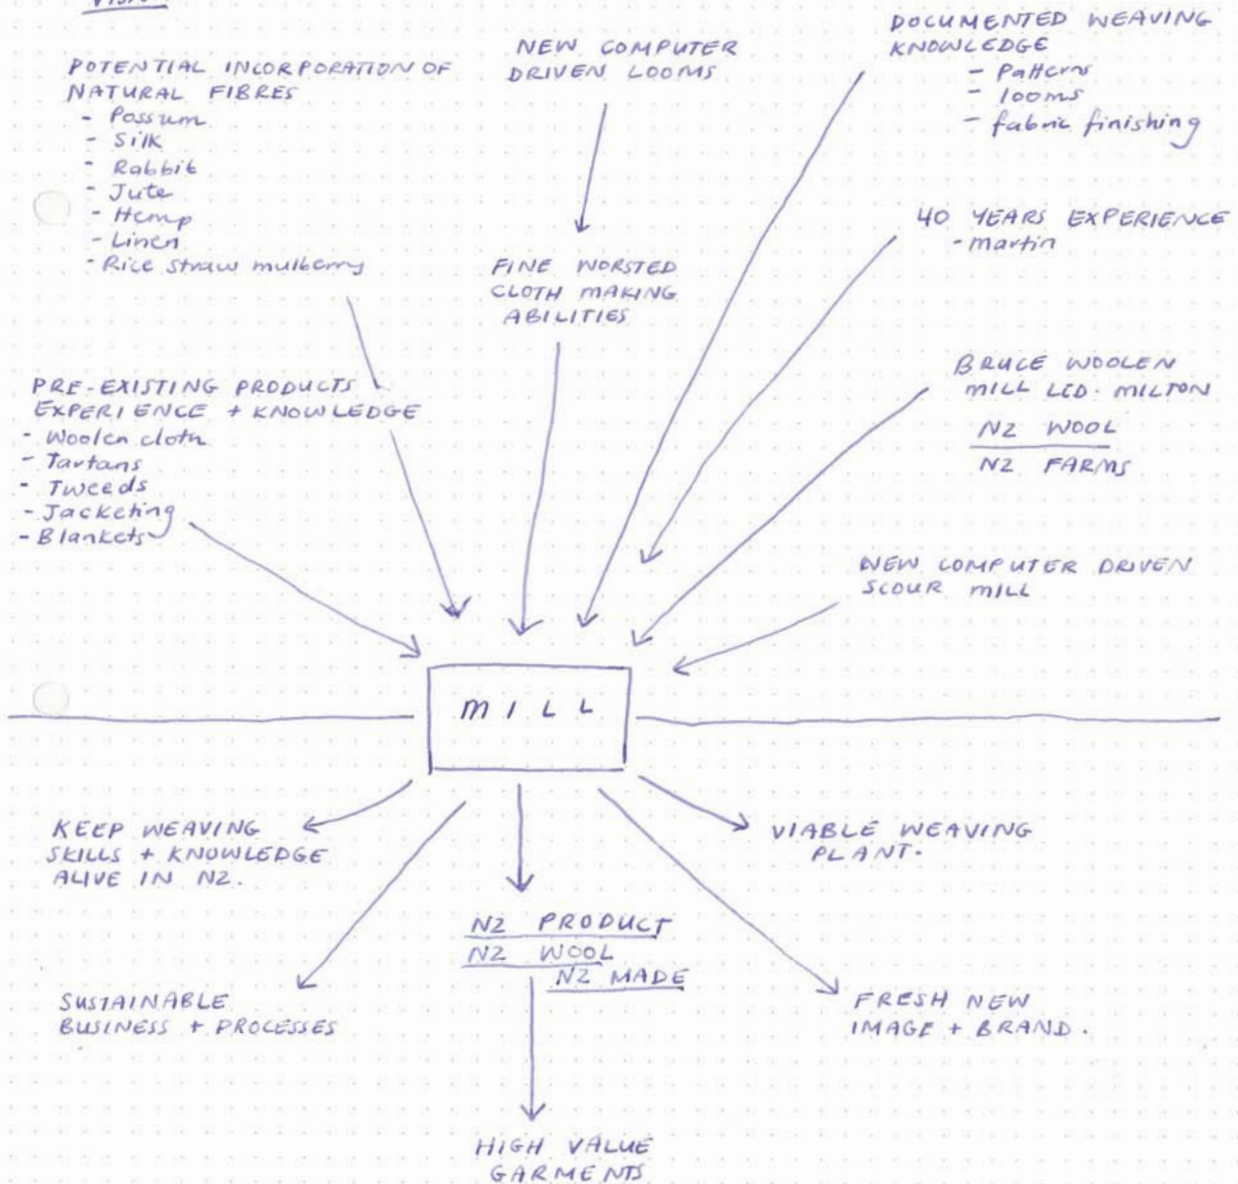 POTENTIAL INCORPORATION OF
NATURAL FIBRES
- Possum
- Silk
- Rabbit
- Jute
- Hemp
- Linen
- Rice straw mulberry
NEW COMPUTER
DRIVEN LOOMS
DOCUMENTED WEAVING
KNOWLEDGE
- Patterns
- looms
- fabric finishing
40 YEARS EXPERIENCE
- martin
FINE WORSTED
CLOTH MAKING
ABILITIES
PRE-EXISTING PRODUCTS
EXPERIENCE + KNOWLEDGE
- Woolen cloth
- Tartans
- Tweeds
- Jacketing
- Blankets
BRUCE WOOLEN
MILL LTD. MILTON
NZ WOOL
NZ FARMS
NEW COMPUTER DRIVEN
SCOUR MILL
MILL
KEEP WEAVING
SKILLS + KNOWLEDGE
ALIVE IN NZ.
VIABLE WEAVING
PLANT.
NZ PRODUCT
NZ WOOL
NZ MADE
SUSTAINABLE
BUSINESS + PROCESSES
FRESH NEW
IMAGE + BRAND.
HIGH VALUE
GARMENTS